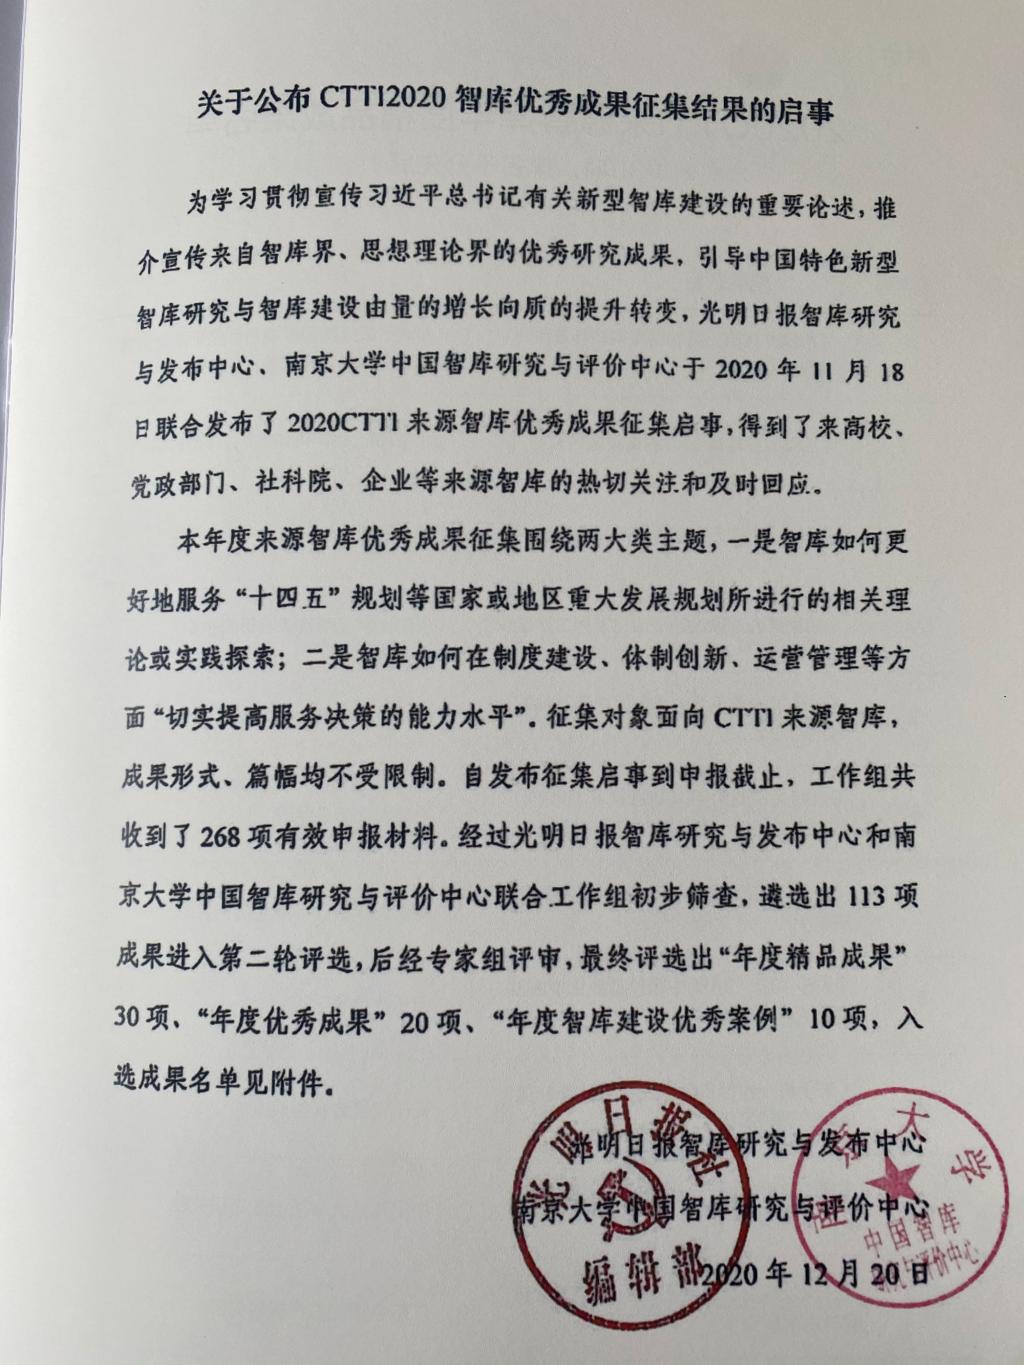 关于公布 CTTI2020 智库优秀成果征集结果的启事
为学习贯彻宣传习近平总书记有关新型智库建设的重要论述，推
介宣传来自智库界、思想理论界的优秀研究成果，引导中国特色新型
智库研究与智库建设由量的增长向质的提升转变，光明日报智库研究
与发布中心、南京大学中国智库研究与评价中心于 2020 年 11 月 18
日联合发布了 2020CTTI 来源智库优秀成果征集启事，得到了来高校、
党政部门、社科院、企业等来源智库的热切关注和及时回应。
本年度来源智库优秀成果征集围绕两大类主题，一是智库如何更
好地服务“十四五”规划等国家或地区重大发展规划所进行的相关理
论或实践探索；二是智库如何在制度建设、体制创新、运营管理等方
面“切实提高服务决策的能力水平”。征集对象面向 CTTI 来源智库，
成果形式、篇幅均不受限制。自发布征集启事到申报截止，工作组共
收到了 268 项有效申报材料。经过光明日报智库研究与发布中心和南
京大学中国智库研究与评价中心联合工作组初步筛查，遴选出 113 项
成果进入第二轮评选，后经专家组评审，最终评选出“年度精品成果”
30 项、“年度优秀成果”20 项、“年度智库建设优秀案例”10 项，入
选成果名单见附件。
光明日报智库研究与发布中心
南京大学中国智库研究与评价中心
2020 年 12 月 20 日
光明日报社
编辑部
南京大学
中国智库
研究与评价中心